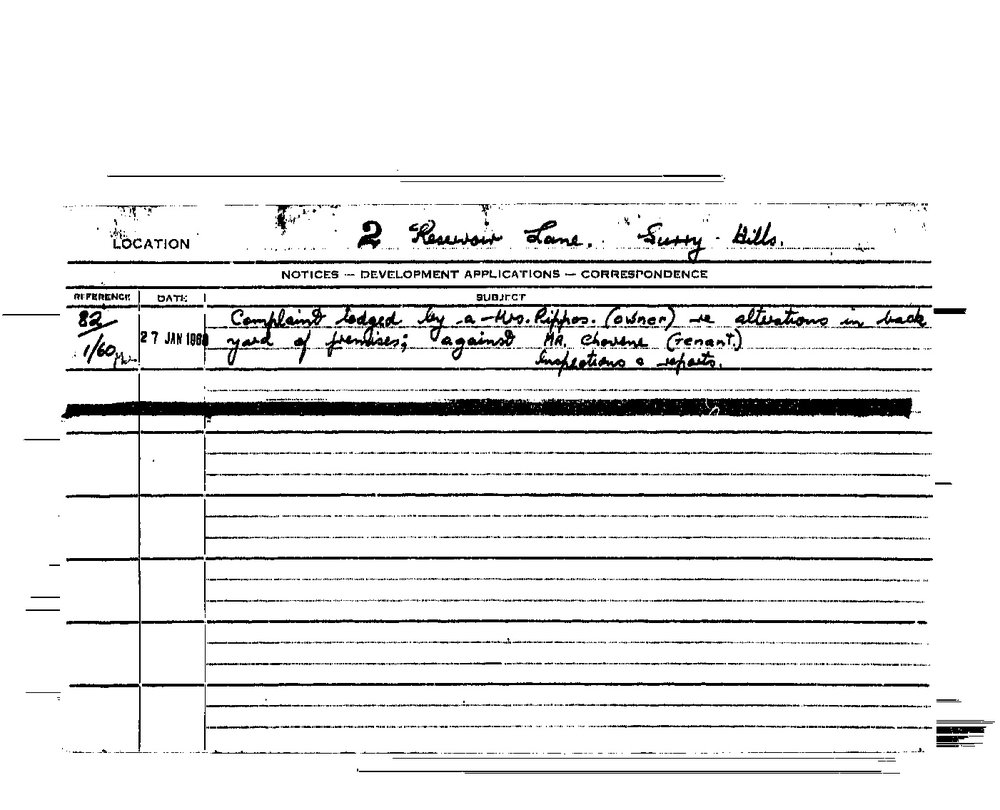 LOCATION 2 Reservoir Lane. Surry Hills.
NOTICES — DEVELOPMENT APPLICATIONS — CORRESPONDENCE
REFERENCE DATE SUBJECT
82 Complaint lodged by a Mrs. Pippos. (owner) re alterations in back
1/60 27 JAN 1960 yard of premises; against MR. (TENANT.)
Inspections & reports.